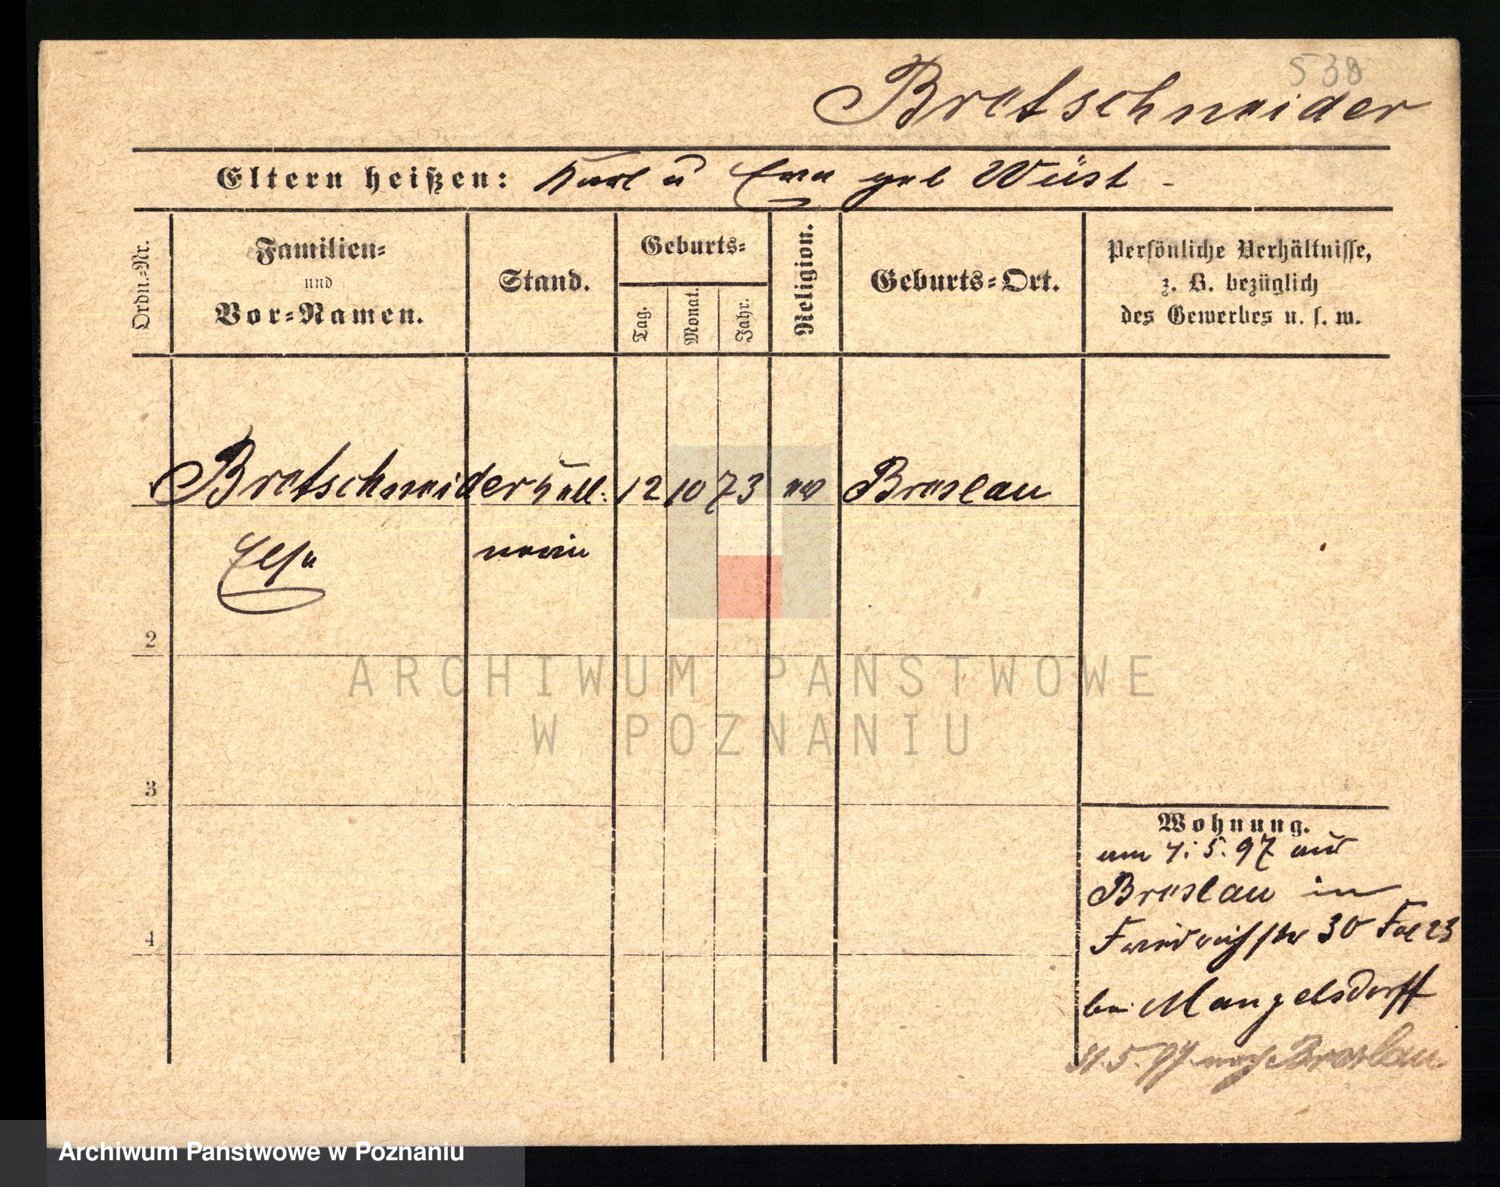 538
Bretschneider
Eltern heißen: Karl u Eva geb Wüst -
Ordn.-Nr.
Familien-
und
Vor-Namen.
Stand.
Geburts-
Tag.
Monat.
Jahr.
Religion.
Geburts-Ort.
Persönliche Verhältnisse,
z. B. bezüglich
des Gewerbes u. s. w.
Bretschneider Kell: 12 10 73 ev Breslau
Elsa nerin
2
3
4
Wohnung.
am 7.5.97 aus
Breslau in
Friedrichstr 30 Fol 23
bei Mangelsdorff
5.97 nach Breslau
ARCHIWUM PAŃSTWOWE
W POZNANIU
Archiwum Państwowe w Poznaniu